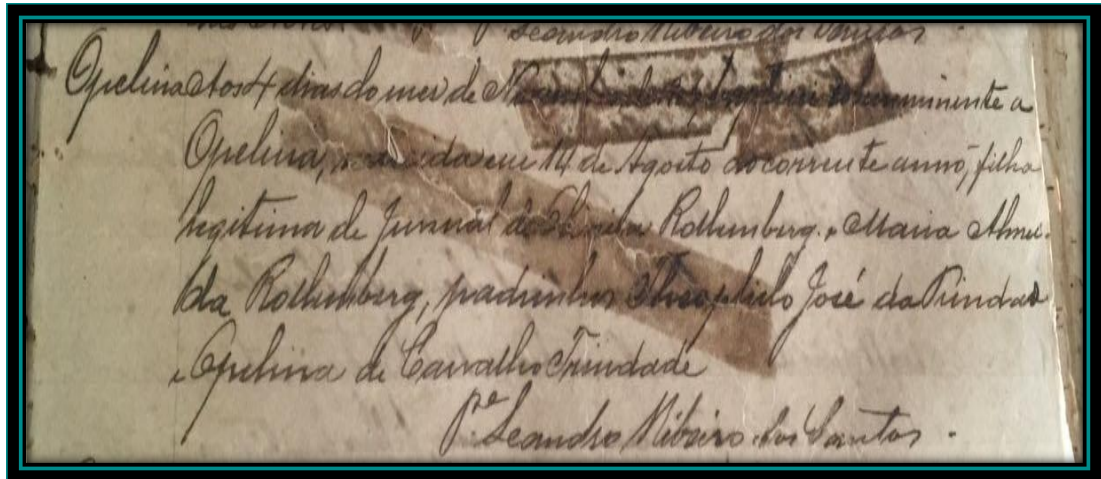 Pe Leandro Ribeiro dos Santos.
Opelina Aos 4 dias do mez de a
Opelina, em 14 de Agosto do corrente anno, filha
legitima de Juvenal Rothemberg e Maria Almei-
da Rothemberg, padrinhos Theophilo José da Trindade
e Opelina de Carvalho Trindade
Pe Leandro Ribeiro dos Santos.